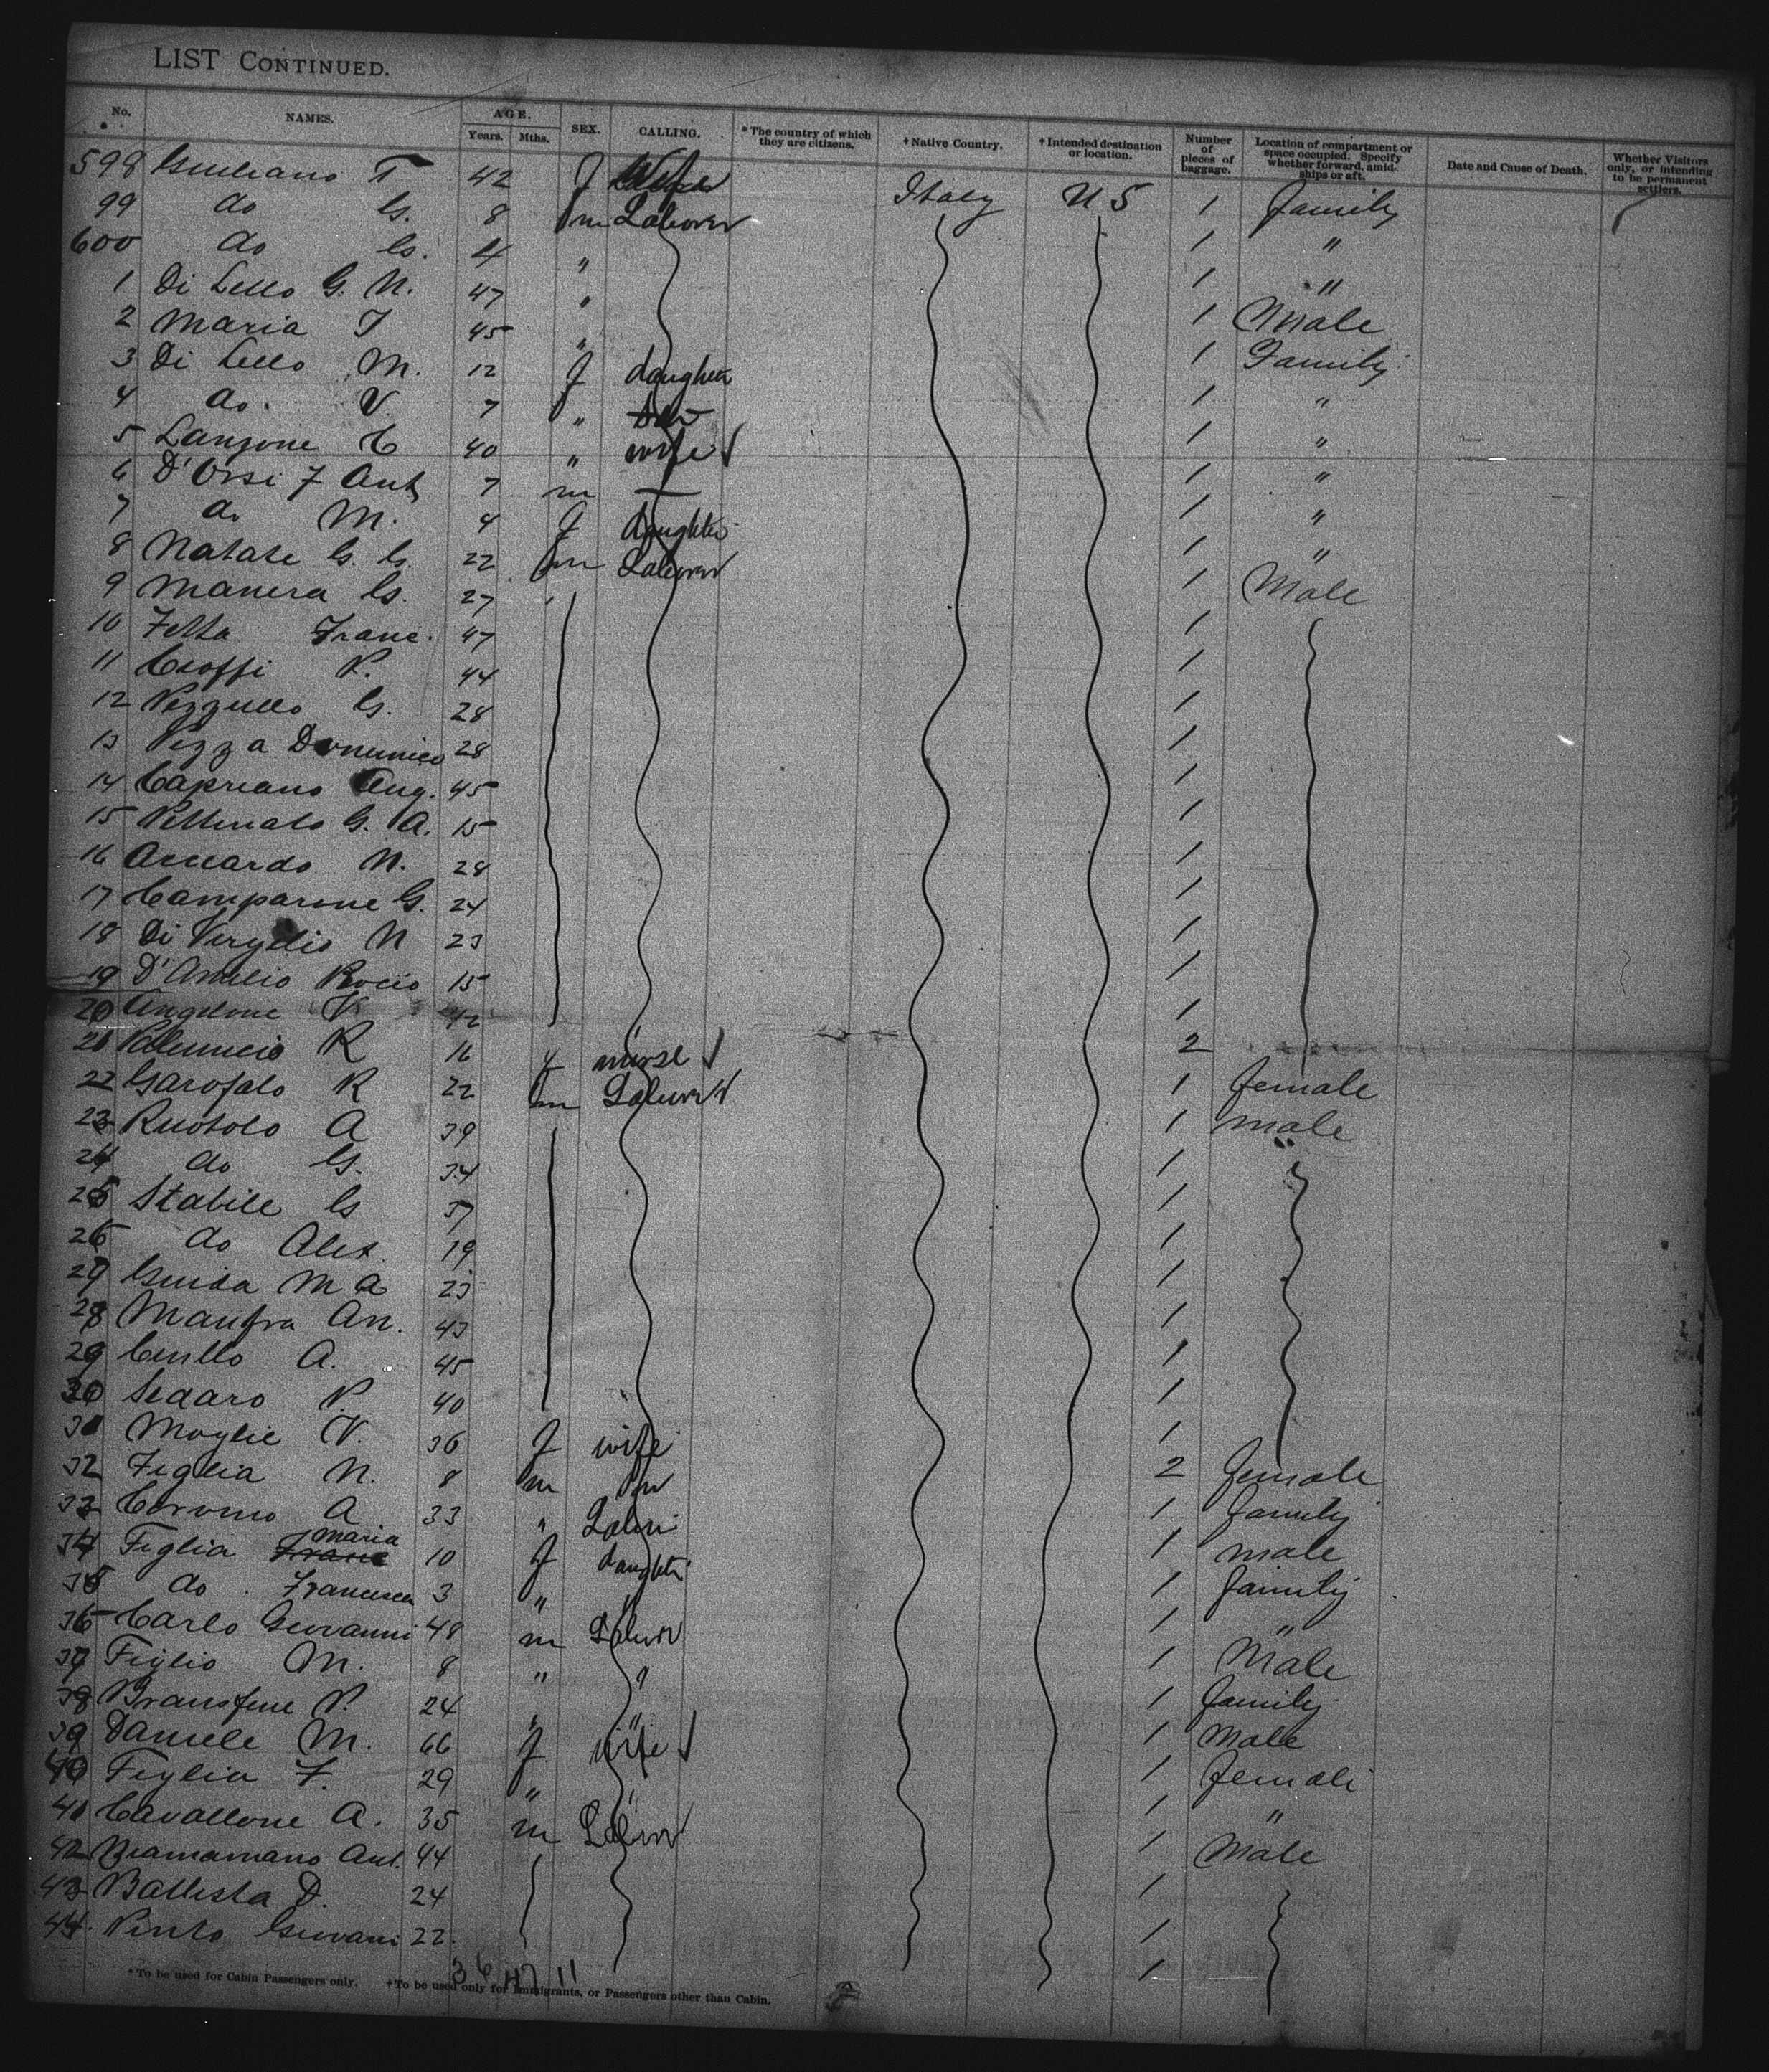 LIST CONTINUED.
No. NAMES. AGE. Years. Mths. SEX. CALLING. * The country of which they are citizens. † Native Country. † Intended destination or location. Number of pieces of baggage. Location of compartment or space occupied. Specify whether forward, amidships or aft. Date and Cause of Death. Whether Visitors only, or intending to be permanent settlers.
598 Giuliano T 42 f Italy U S 1 family
99 do G. 8 m Laborer 1 "
600 do G. 4 " 1 "
1 Di Lello G. N. 47 " 1 Male
2 Maria T 45 " 1 Family
3 Di Lello M. 12 f daughter 1 "
4 do. V. 7 " 1 "
5 Lanzone C 40 " wife 1 "
6 D'Orsi F Ant 7 m — 1 "
7 do M. 4 f daughter 1 "
8 Natale G. G. 22 m Laborer 1 Male
9 Manera G. 27 1
10 Zetta Franc. 47 1
11 Cioffi P. 44 1
12 Pezzullo G. 28 1
13 Pezza Domenico 28 1
14 Capriano Aug. 45 1
15 Pettinato G. A. 15 1
16 Accardo N. 28 1
17 Camparone G. 24 1
18 Di Virgilio N 23 1
19 D'Amelio Rocio 15 1
20 Angelone V 42 1
21 R 16 f nurse 2 female
22 Garofalo R 22 m Laborer 1 male
23 Ruotolo A 39 1 "
24 do G. 34 1
25 Stabile G 37 1
26 do Alex. 19 1
27 Guida M A 23 1
28 Manfra An. 43 1
29 Cirillo A. 45 1
30 Sedaro P. 40 1
31 Moglie V. 36 f wife 2 female
32 Figlia N. 8 m 1 family
33 A 33 " Labor 1 male
34 Figlia Maria 10 f daughter 1 family
35 do. Francesca 3 " " 1 "
36 Carlo Giovanni 48 m Laborer 1 Male
37 Figlio M. 8 " " 1 family
38 P. 24 " " 1 Male
39 Daniele M. 66 f wife 1 female
40 Figlia F. 29 " 1 "
41 Cavallone A. 35 m Laborer 1 Male
42 Ant. 44 1
43 Battista D. 24 1
44 Pinto Giovani 22. 1
36 47 11
* To be used for Cabin Passengers only. † To be used only for Immigrants, or Passengers other than Cabin.